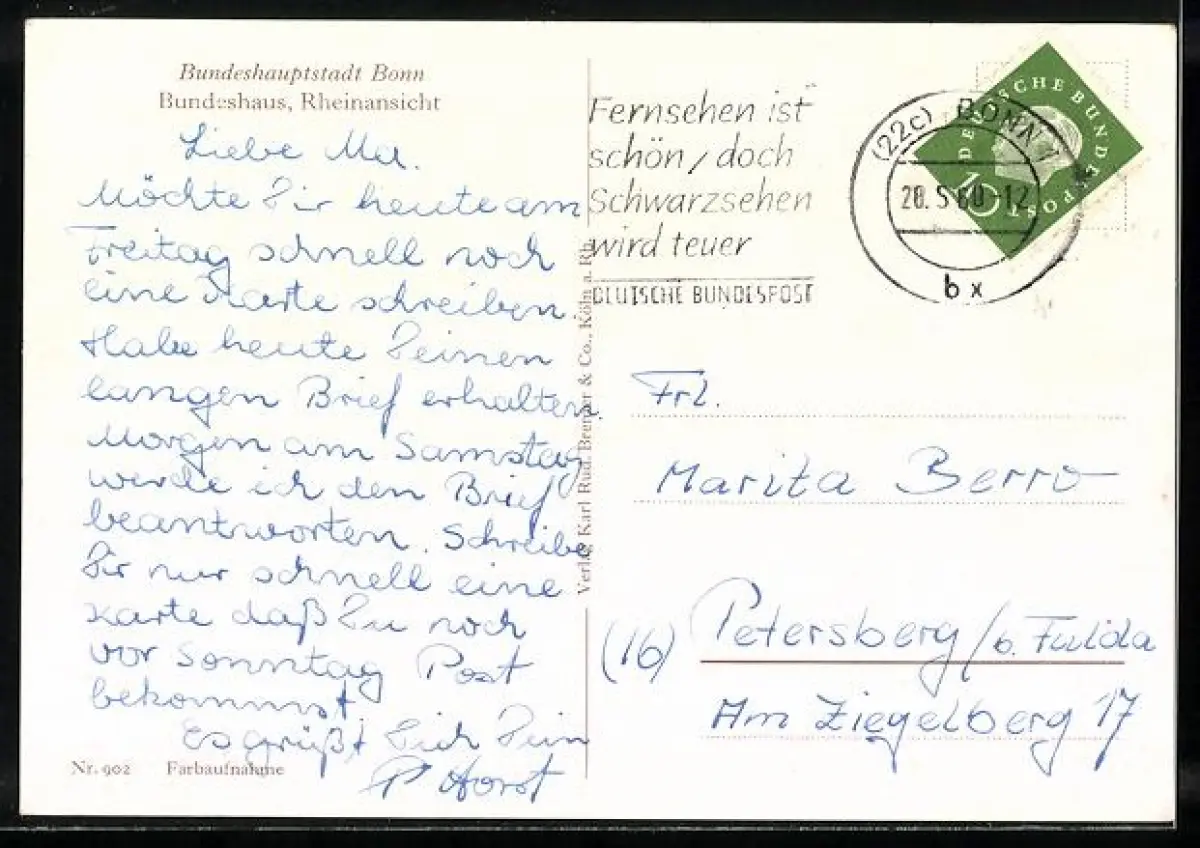 Bundeshauptstadt Bonn
Bundeshaus, Rheinansicht
Liebe Ma.
Möchte Dir heute am
Freitag schnell noch
eine Karte schreiben.
Habe heute Deinen
langen Brief erhalten.
Morgen am Samstag
werde ich den Brief
beantworten. Schreibe
Dir nur schnell eine
Karte daß Du noch
vor Sonntag Post
bekommst
Es grüßt Dich Dein
Horst
Nr. 902 Farbaufnahme
Verlag Karl Rud. Bremer & Co., Köln a. Rh.
Fernsehen ist
schön, doch
Schwarzsehen
wird teuer
DEUTSCHE BUNDESPOST
(22c) BONN 1
20.5.60-12
bx
DEUTSCHE BUNDESPOST
10
Frl.
Marita Berro
(16) Petersberg / b. Fulda
Am Ziegelberg 17